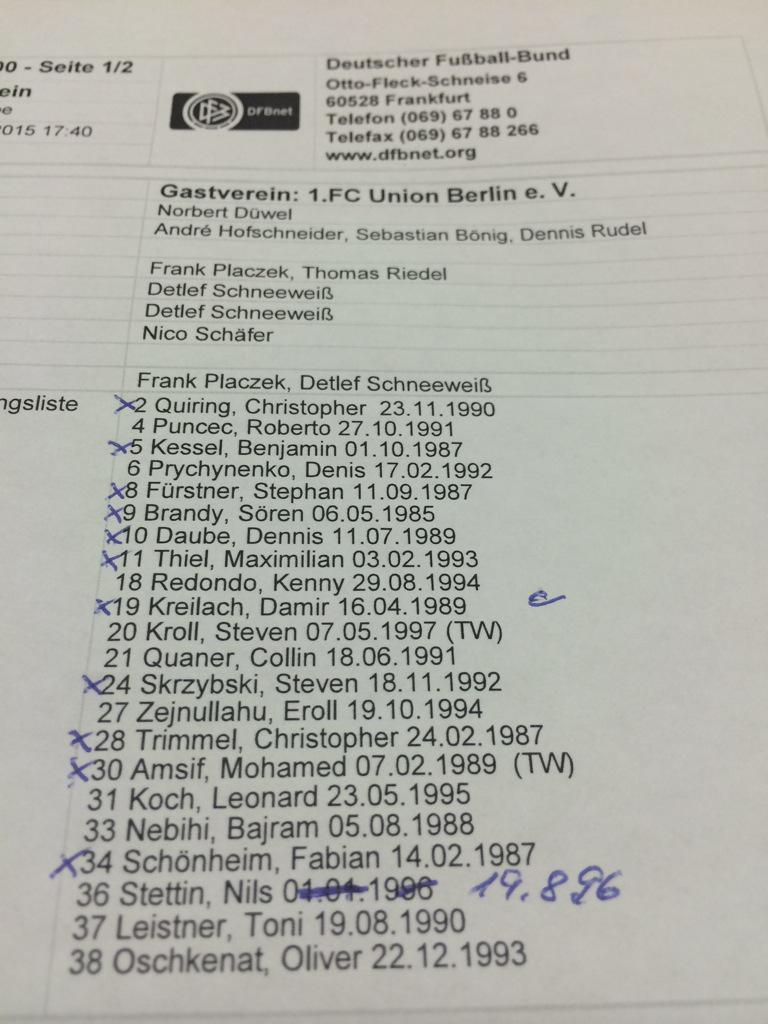 00 - Seite 1/2
ein
e
015 17:40
DFB DFBnet
Deutscher Fußball-Bund
Otto-Fleck-Schneise 6
60528 Frankfurt
Telefon (069) 67 88 0
Telefax (069) 67 88 266
www.dfbnet.org
Gastverein: 1.FC Union Berlin e. V.
Norbert Düwel
André Hofschneider, Sebastian Bönig, Dennis Rudel
Frank Placzek, Thomas Riedel
Detlef Schneeweiß
Detlef Schneeweiß
Nico Schäfer
Frank Placzek, Detlef Schneeweiß
ngsliste x2 Quiring, Christopher 23.11.1990
4 Puncec, Roberto 27.10.1991
x5 Kessel, Benjamin 01.10.1987
6 Prychynenko, Denis 17.02.1992
x8 Fürstner, Stephan 11.09.1987
x9 Brandy, Sören 06.05.1985
x10 Daube, Dennis 11.07.1989
x11 Thiel, Maximilian 03.02.1993
18 Redondo, Kenny 29.08.1994
x19 Kreilach, Damir 16.04.1989 c
20 Kroll, Steven 07.05.1997 (TW)
21 Quaner, Collin 18.06.1991
x24 Skrzybski, Steven 18.11.1992
27 Zejnullahu, Eroll 19.10.1994
x28 Trimmel, Christopher 24.02.1987
x30 Amsif, Mohamed 07.02.1989 (TW)
31 Koch, Leonard 23.05.1995
33 Nebihi, Bajram 05.08.1988
x34 Schönheim, Fabian 14.02.1987
36 Stettin, Nils 01.01.1996 19.8.96
37 Leistner, Toni 19.08.1990
38 Oschkenat, Oliver 22.12.1993